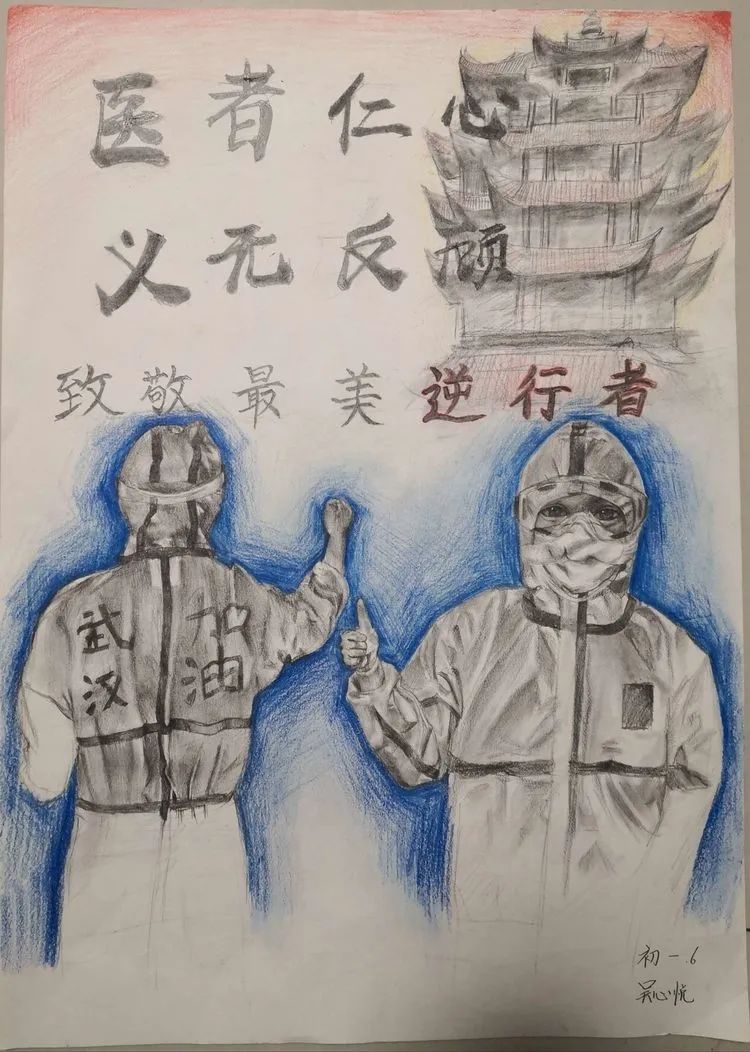 医者仁心
义无反顾
致敬最美逆行者
武汉
加油
初一.6
吴心悦